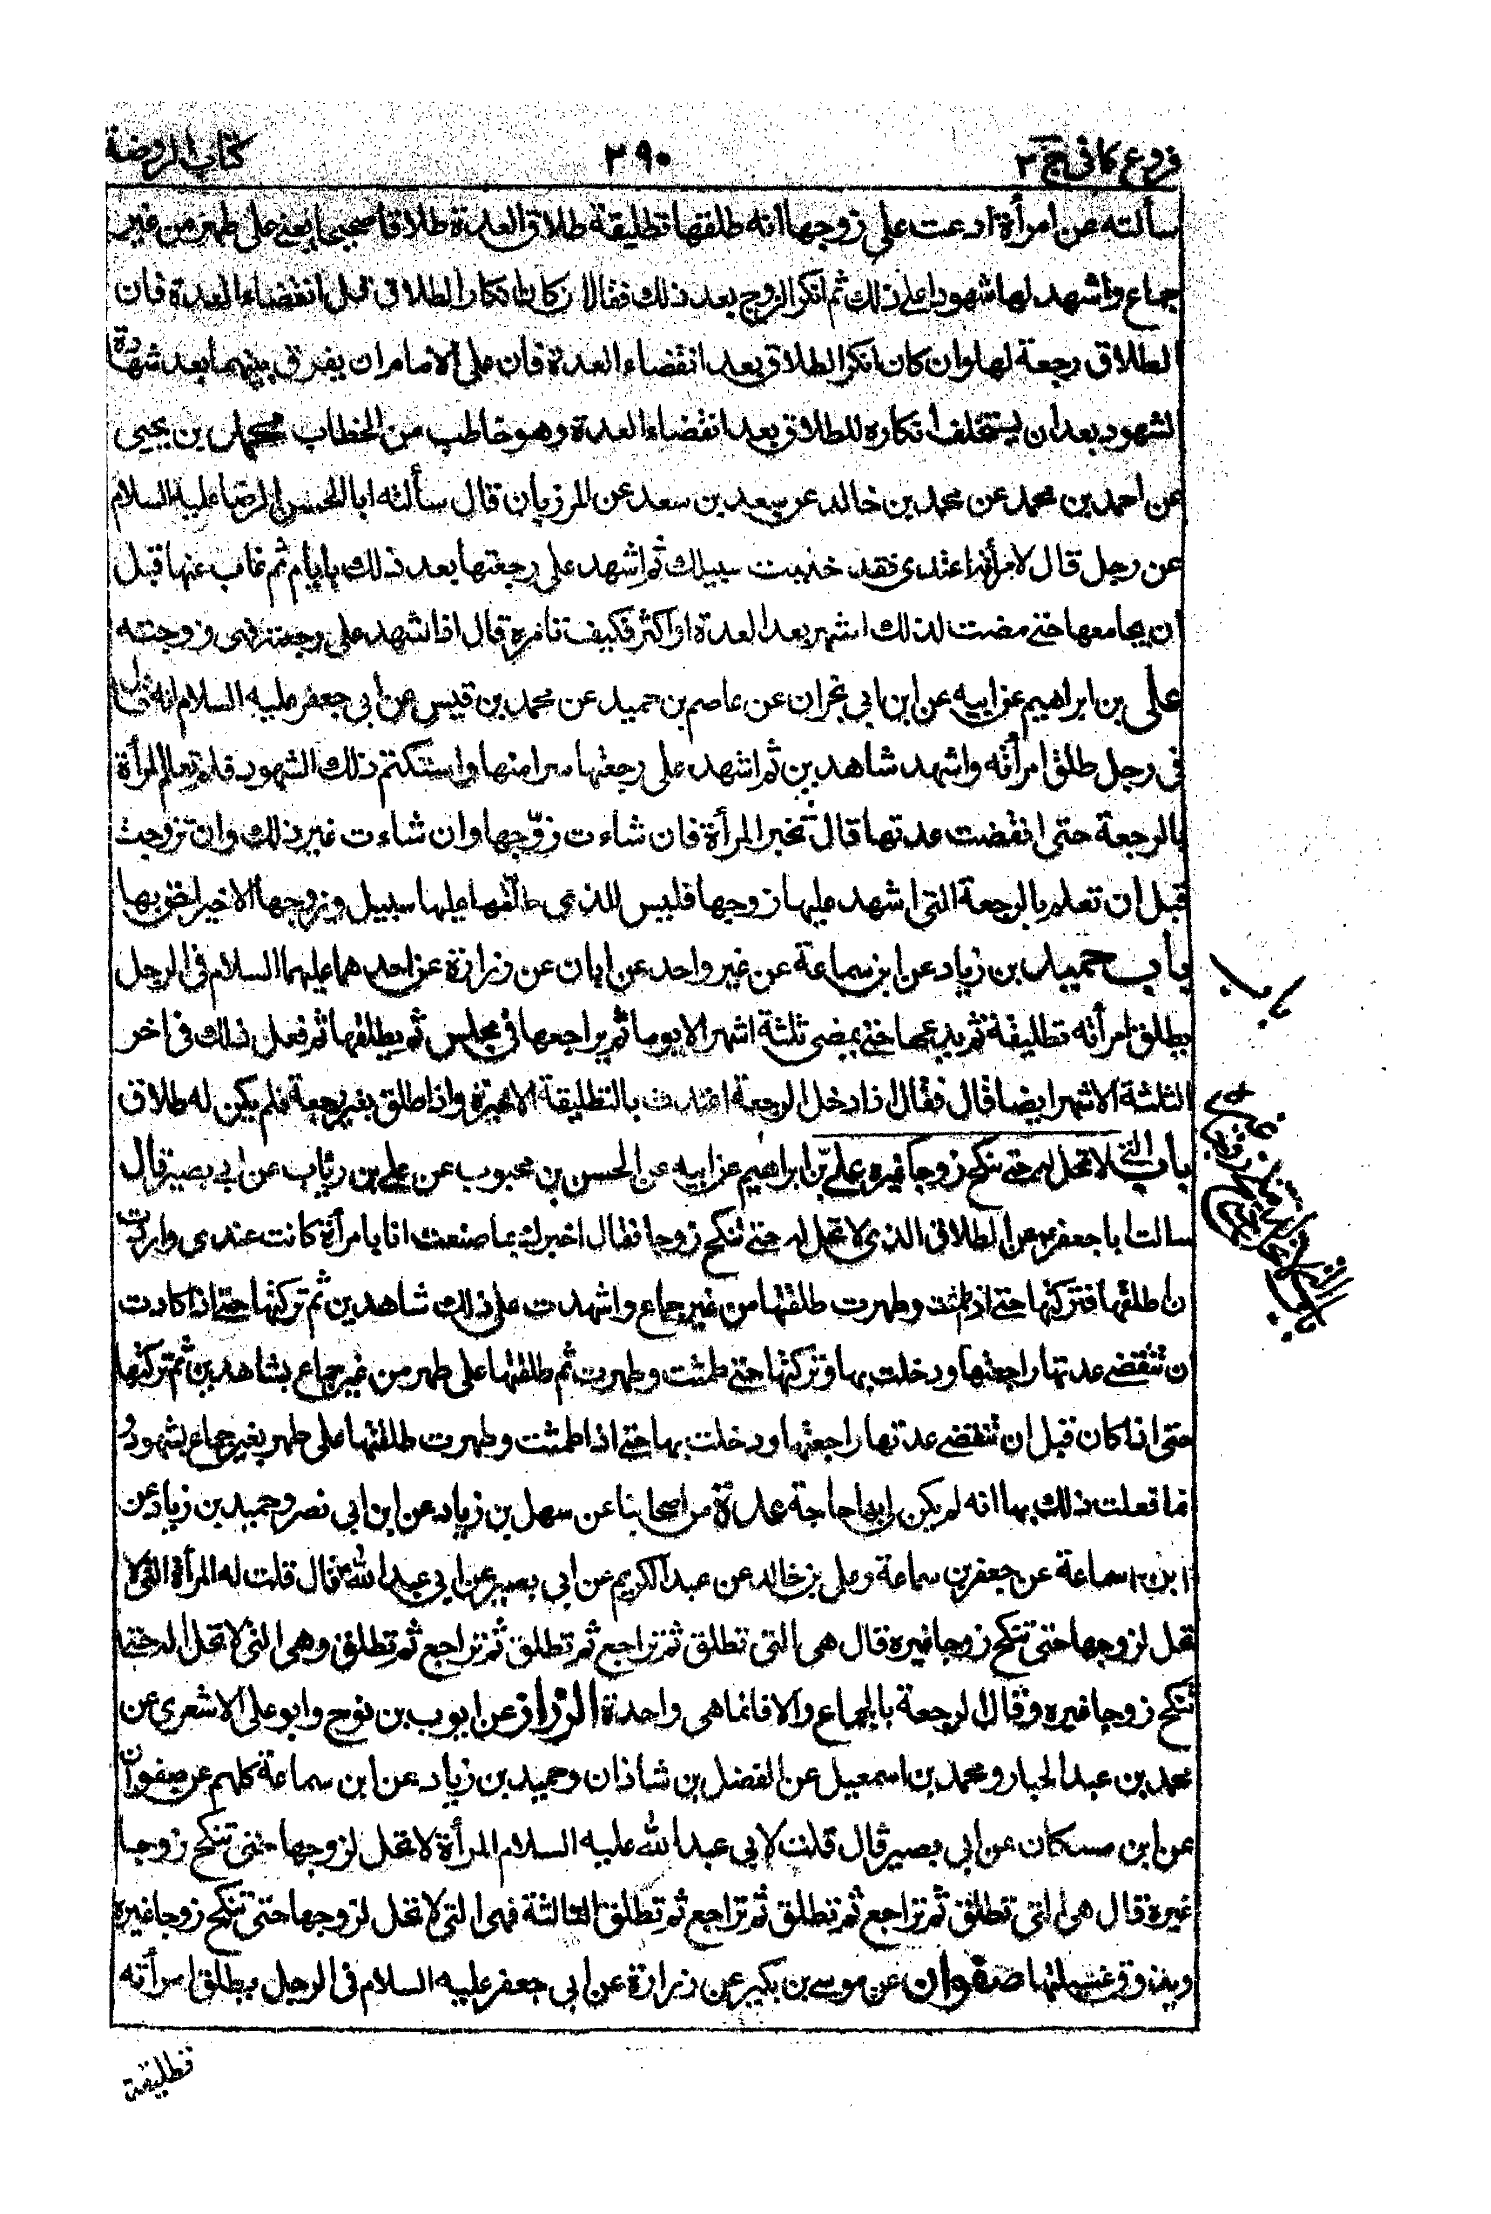 فروع كافى ج ٢
٣٩٠
كتاب الروضة
سألته عن امرأة ادعت على زوجها انه طلقها تطليقة طلاق العدة طلاقا صحيحا يعنى على طهر من غير
جماع واشهد لها شهودا على ذلك ثم انكر الزوج بعد ذلك فقال ان كان انكار الطلاق قبل انقضاء العدة فان
الطلاق رجعة لها وان كان انكر الطلاق بعد انقضاء العدة فان على الامام ان يفرق بينهما بعد شهادة
الشهود بعد ان يستحلف انكاره للطلاق بعد انقضاء العدة وهو خاطب من الخطاب محمد بن يحيى
عن احمد بن محمد عن محمد بن خالد عن سعد بن سعد عن المرزبان قال سألته ابا الحسن الرضا عليه السلام
عن رجل قال لامرأته اعتدى فقد خليت سبيلك ثم اشهد على رجعتها بعد ذلك بايام ثم غاب عنها قبل
ان يجامعها حتى مضت لذلك اشهر بعد العدة او اكثر فكيف تامره قال اذا اشهد على رجعته فهى زوجته
على بن ابراهيم عن ابيه عن ابن ابى نجران عن عاصم بن حميد عن محمد بن قيس عن ابى جعفر عليه السلام انه قال
فى رجل طلق امرأته واشهد شاهدين ثم اشهد على رجعتها سرا منها واستكتم ذلك الشهود فلم تعلم المرأة
بالرجعة حتى انقضت عدتها قال تخير المرأة فان شاءت زوجها وان شاءت غير ذلك وان تزوجت
قبل ان تعلم بالرجعة التى اشهد عليها زوجها فليس للذى طلقها عليها سبيل وزوجها الاخير احق بها
باب حميد بن زياد عن ابن سماعة عن غير واحد عن ابان عن زرارة عن احدهما عليهما السلام فى الرجل
يطلق امرأته تطليقة ثم يدعها حتى يمضى ثلثة اشهر الا يوما ثم يراجعها فى مجلس ثم يطلقها ثم فعل ذلك فى اخر
الثلثة الاشهر ايضا قال فقال اذا دخل الرجعة اعتدت بالتطليقة الاخيرة واذا طلق بغير رجعة فلم يكن له طلاق
باب التى لا تحل له حتى تنكح زوجا غيره على بن ابراهيم عن ابيه عن الحسن بن محبوب عن على بن رئاب عن ابى بصير قال
سالت ابا جعفر ع عن الطلاق الذى لا تحل له حتى تنكح زوجا فقال اخبرك بما صنعت انا بامرأة كانت عندى واردت
ان اطلقها فتركتها حتى اذا طمثت وطهرت طلقتها من غير جماع واشهدت على ذلك شاهدين ثم تركتها حتى اذا كادت
ان تنقضى عدتها راجعتها ودخلت بها وتركتها حتى طمثت وطهرت ثم طلقتها على طهر من غير جماع بشاهدين ثم تركتها
حتى اذا كان قبل ان تنقضى عدتها راجعتها ودخلت بها حتى اذا طمثت وطهرت طلقتها على طهر بغير جماع بشهود
نما فعلت ذلك بها انه لم يكن لى بها حاجة عدة من اصحابنا عن سهل بن زياد عن ابن ابى نصر وحميد بن زياد عن
ابن سماعة عن جعفر بن سماعة وعلى بن خالد عن عبد الكريم عن ابى بصير عن ابى عبد الله ع قال قلت له المرأة التى لا
تحل لزوجها حتى تنكح زوجا غيره قال هى التى تطلق ثم تراجع ثم تطلق ثم تراجع ثم تطلق وهى التى لا تحل له حتى
تنكح زوجا غيره وقال الرجعة بالجماع والا فانما هى واحدة الرزاز عن ايوب بن نوح وابو على الاشعرى عن
محمد بن عبد الجبار ومحمد بن اسمعيل عن الفضل بن شاذان وحميد بن زياد عن ابن سماعة كلهم عن صفوان
عن ابن مسكان عن ابى بصير قال قلت لابى عبد الله عليه السلام المرأة لا تحل لزوجها حتى تنكح زوجا
غيره قال هى التى تطلق ثم تراجع ثم تطلق ثم تراجع ثم تطلق الثالثة فهى التى لا تحل لزوجها حتى تنكح زوجا غيره
ويذوق عسيلتها صفوان عن موسى بن بكير عن زرارة عن ابى جعفر عليه السلام فى الرجل يطلق امرأته
تطليقة
باب
باب التى لا تحل لزوجها حتى تنكح زوجا غيره